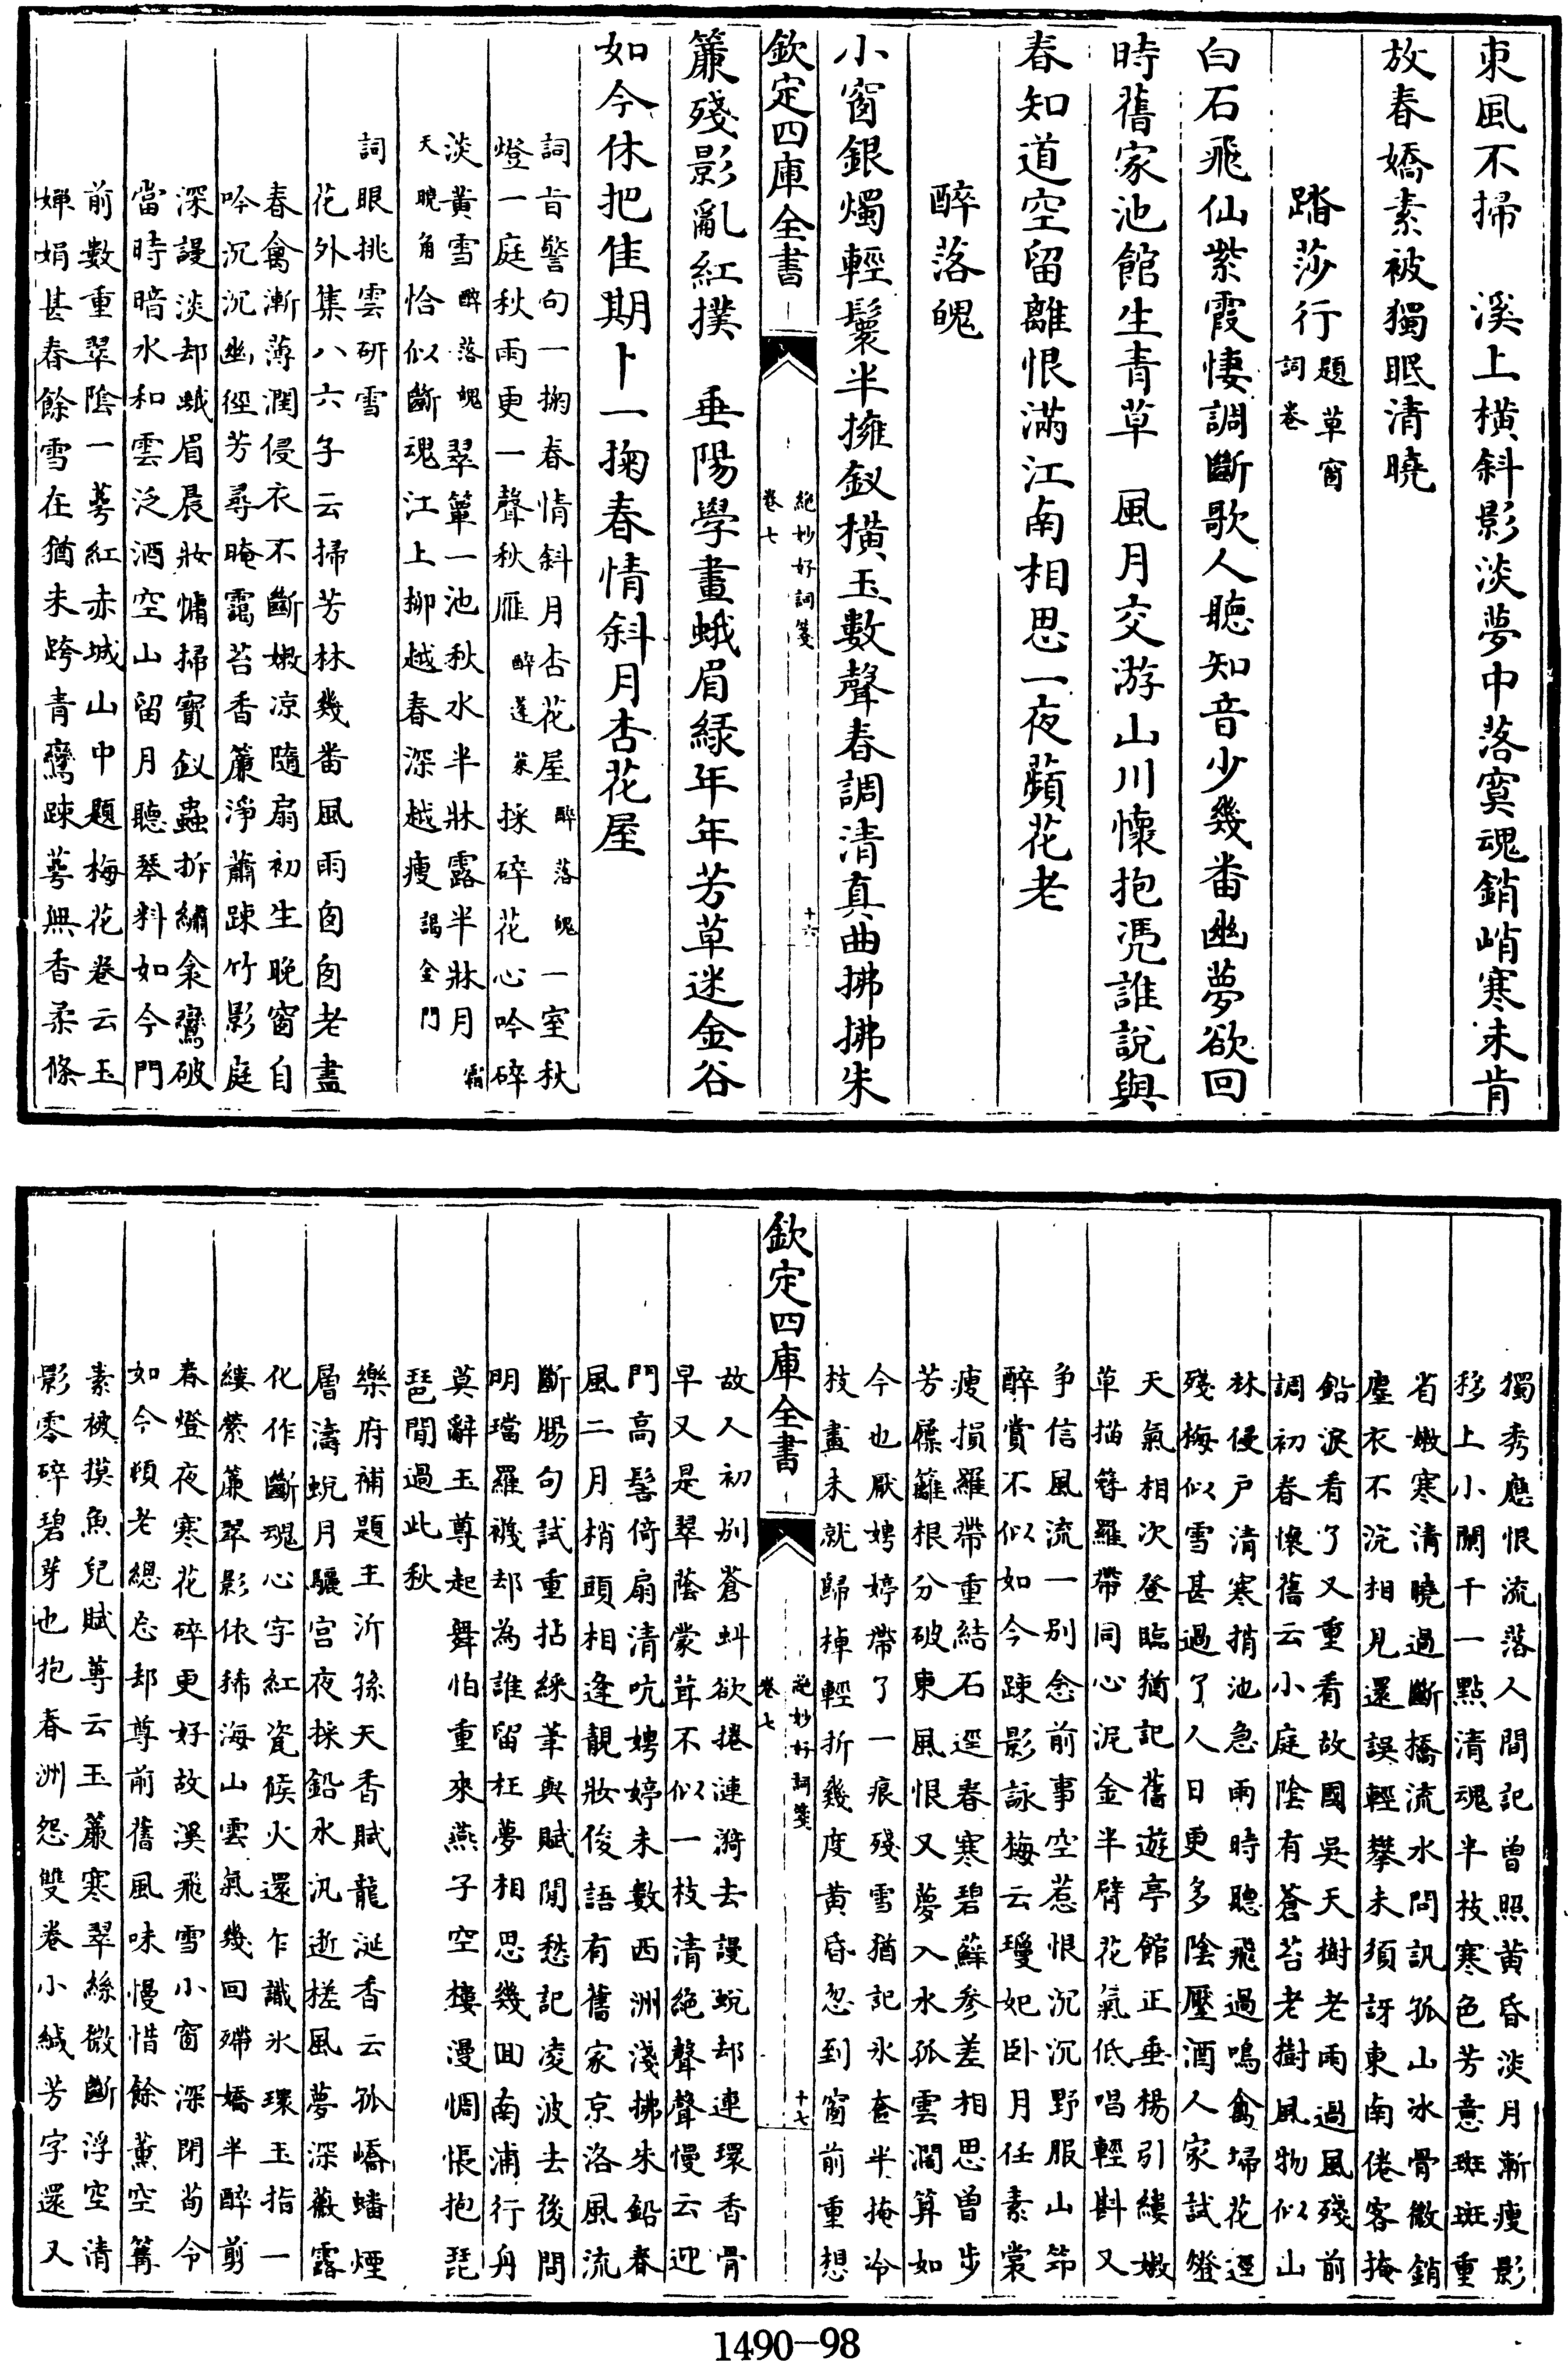 東風不掃　溪上橫斜影淡夢中落寞魂銷峭寒未肯
放春嬌素被獨眠清曉
踏莎行題草窗詞卷
白石飛仙紫霞悽調斷歌人聽知音少幾番幽夢欲回
時舊家池館生青草　風月交游山川懷抱凴誰說與
春知道空留離恨滿江南相思一夜蘋花老
醉落魄
小窗銀燭輕鬟半擁釵橫玉數聲春調清真曲拂拂朱
欽定四庫全書
絶妙好詞箋
卷七
十六
簾殘影亂紅撲　垂陽學畫蛾眉緑年年芳草迷金谷
如今休把佳期卜一掬春情斜月杏花屋
詞旨警句一掬春情斜月杏花屋醉落魄一室秋
燈一庭秋雨更一聲秋雁醉蓬萊採碎花心吟碎
淡黃雪醉落魄翠簟一池秋水半牀露半牀月霜
天曉角恰似斷魂江上柳越春深越瘦謁金門
詞眼挑雲研雪
花外集八六子云掃芳林幾番風雨匆匆老盡
春禽漸薄潤侵衣不斷嫩凉隨扇初生晚窗自
吟沉沉幽徑芳尋晻靄苔香簾淨蕭踈竹影庭
深謾淡却蛾眉晨妝慵掃寶釵蟲折繡衾鸞破
當時暗水和雲泛酒空山留月聽琴料如今門
前數重翠陰一萼紅赤城山中題梅花卷云玉
嬋娟甚春餘雪在猶未跨青鸞踈萼無香柔條
獨秀應恨流落人間記曾照黃昏淡月漸瘦影
移上小闌干一點清魂半枝寒色芳意斑斑重
省嫩寒清曉過斷橋流水問訊孤山冰骨微銷
塵衣不浣相見還誤輕攀未須訝東南倦客掩
鉛淚看了又重看故國吳天樹老雨過風殘前
調初春懷舊云小庭陰有蒼苔老樹風物似山
林侵户清寒捎池急雨時聽飛過鳴禽掃花逕
殘梅似雪甚過了人日更多陰壓酒人家試燈
天氣相次登臨猶記舊遊亭館正垂楊引縷嫩
草描簪羅帶同心泥金半臂花氣低唱輕斟又
争信風流一别念前事空惹恨沉沉野服山笻
醉賞不似如今踈影詠梅云瓊妃卧月任素裳
瘦損羅帶重結石逕春寒碧蘚參差相思曾步
芳屧籬根分破東風恨又夢入水孤雲濶算如
今也厭娉婷帶了一痕殘雪猶記氷奩半掩冷
枝畫未就歸棹輕折幾度黃昏忽到窗前重想
欽定四庫全書
絶妙好詞箋
卷七
十七
故人初别蒼虬欲捲漣漪去謾蛻却連環香骨
早又是翠蔭蒙茸不似一枝清絶聲聲慢云迎
門高髻倚扇清吭娉婷未數西洲淺拂朱鉛春
風二月梢頭相逢靚妝俊語有舊家京洛風流
斷腸句試重拈綵筆與賦閒愁記凌波去後問
明璫羅襪却為誰留枉夢相思幾囬南浦行舟
莫辭玉尊起舞怕重來燕子空樓漫惆悵抱琵
琶閒過此秋
樂府補題王沂孫天香賦龍涎香云孤嶠蟠煙
層濤蛻月驪宫夜採鉛水汛逝槎風夢深薇露
化作斷魂心字紅瓷候火還乍識氷環玉指一
縷縈簾翠影依稀海山雲氣幾回殢嬌半醉剪
春燈夜寒花碎更好故溪飛雪小窗深閉荀令
如今頓老總忘却尊前舊風味慢惜餘薰空篝
素被摸魚兒賦蓴云玉簾寒翠絲微斷浮空清
影零碎碧芽也抱春洲怨雙卷小緘芳字還又
1490-98